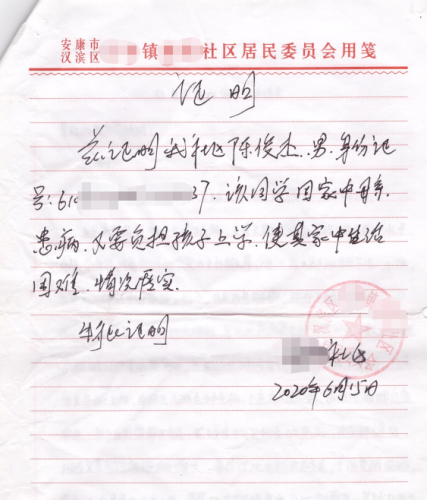 安康市汉滨区 镇 社区居民委员会用笺
证明
兹证明我社区陈俊杰,男,身份证
号:610 37,该同学因家中母亲
患病,又要负担孩子上学,使其家中生活
困难,情况属实.
特此证明
社区
2020年6月15日